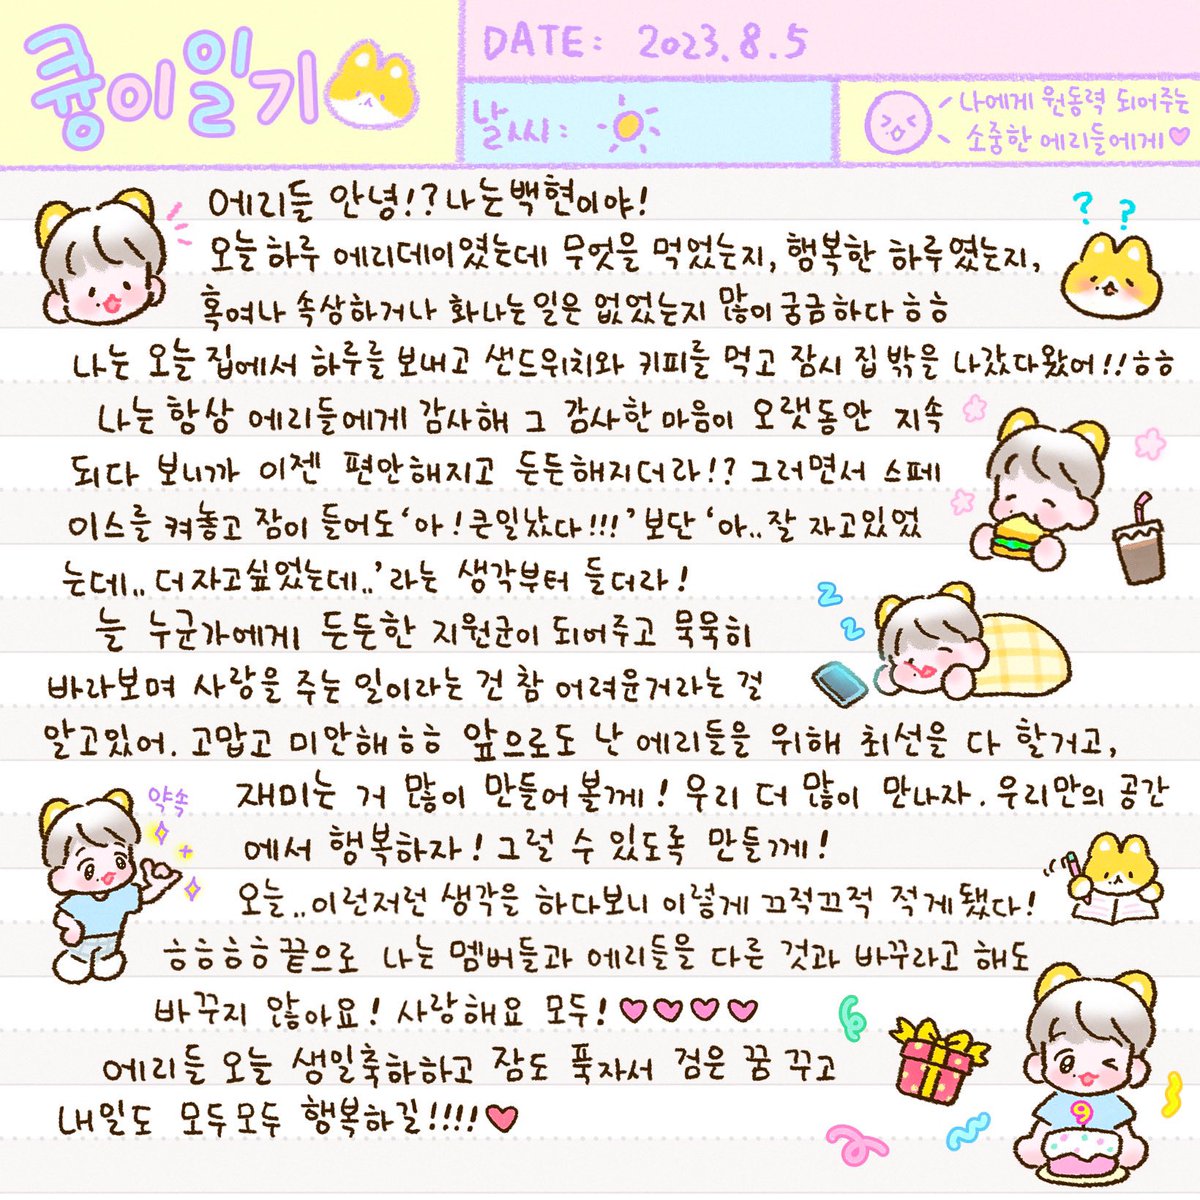 큥이일기
DATE: 2023.8.5
날씨:
나에게 원동력 되어주는
소중한 에리들에게♥
에리들 안녕!? 나는 백현이야!
오늘 하루 에리데이였는데 무엇을 먹었는지, 행복한 하루였는지,
? ?
혹여나 속상하거나 화나는 일은 없었는지 많이 궁금하다 ㅎㅎ
나는 오늘 집에서 하루를 보내고 샌드위치와 커피를 먹고 잠시 집 밖을 나갔다왔어!! ㅎㅎ
나는 항상 에리들에게 감사해 그 감사한 마음이 오랫동안 지속
되다 보니까 이젠 편안해지고 든든해지더라!? 그러면서 스페
이스를 켜놓고 잠이 들어도 '아! 큰일났다!!!' 보단 '아.. 잘 자고있었
는데.. 더 자고싶었는데..' 라는 생각부터 들더라!
z
z
늘 누군가에게 든든한 지원군이 되어주고 묵묵히
바라보며 사랑을 주는 일이라는 건 참 어려운거라는 걸
알고있어. 고맙고 미안해 ㅎㅎ 앞으로도 난 에리들을 위해 최선을 다 할거고,
약속
재미는 거 많이 만들어볼께! 우리 더 많이 만나자. 우리만의 공간
에서 행복하자! 그럴 수 있도록 만들께!
오늘.. 이런저런 생각을 하다보니 이렇게 끄적끄적 적게됐다!
ㅎㅎㅎㅎ 끝으로 나는 멤버들과 에리들을 다른 것과 바꾸라고 해도
바꾸지 않아요! 사랑해요 모두! ♥♥♥♥
에리들 오늘 생일축하하고 잠도 푹자서 검은 꿈 꾸고
내일도 모두모두 행복하길!!!! ♥
9